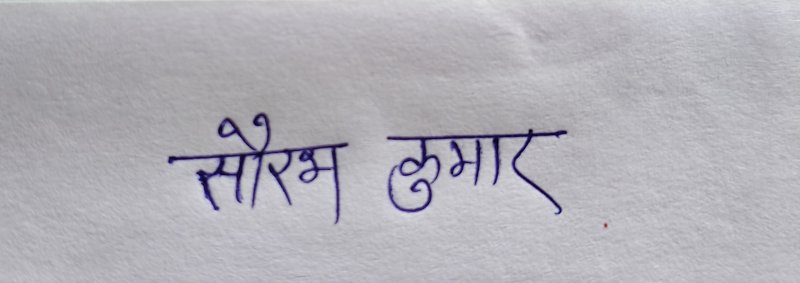 सौरभ कुमार